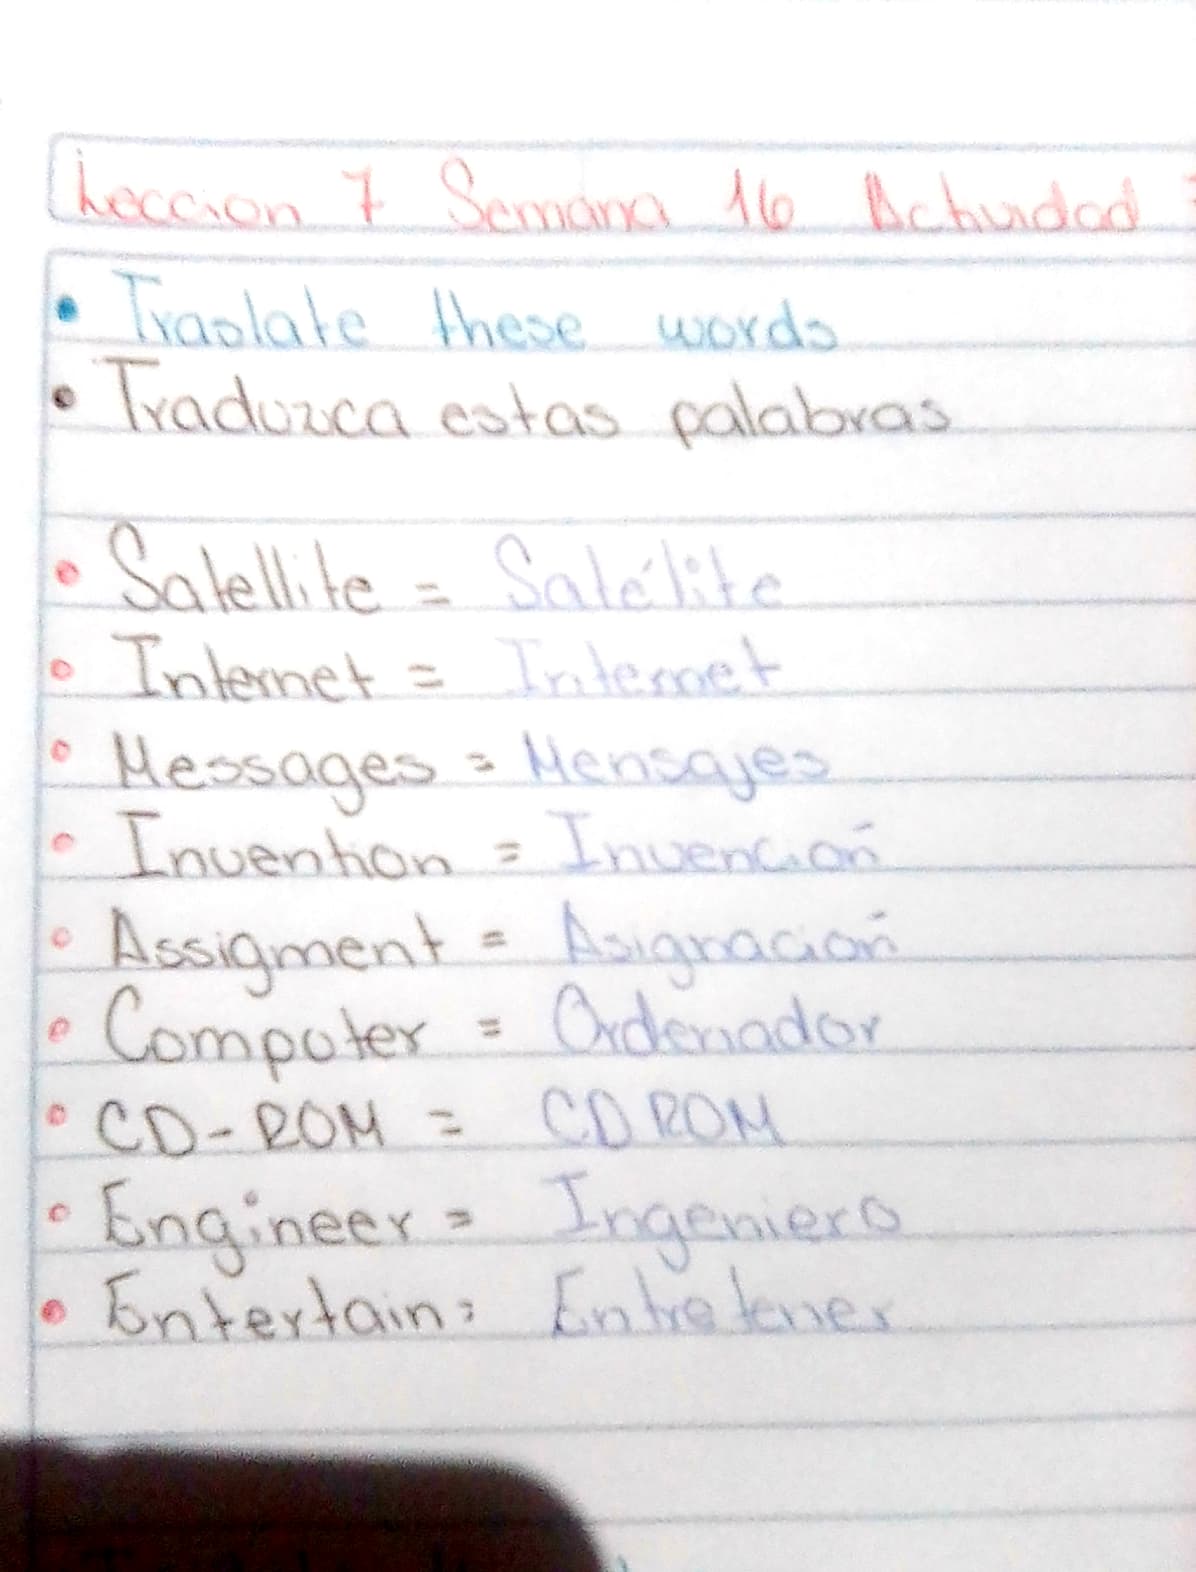 Leccion 7 Semana 16 Actividad
• Traslate these words
• Traduzca estas palabras
• Satellite = Satélite
• Internet = Internet
• Messages = Mensajes
• Invention = Invención
• Assigment = Asignación
• Computer = Ordenador
• CD-ROM = CD ROM
• Engineer = Ingeniero
• Entertain = Entretener